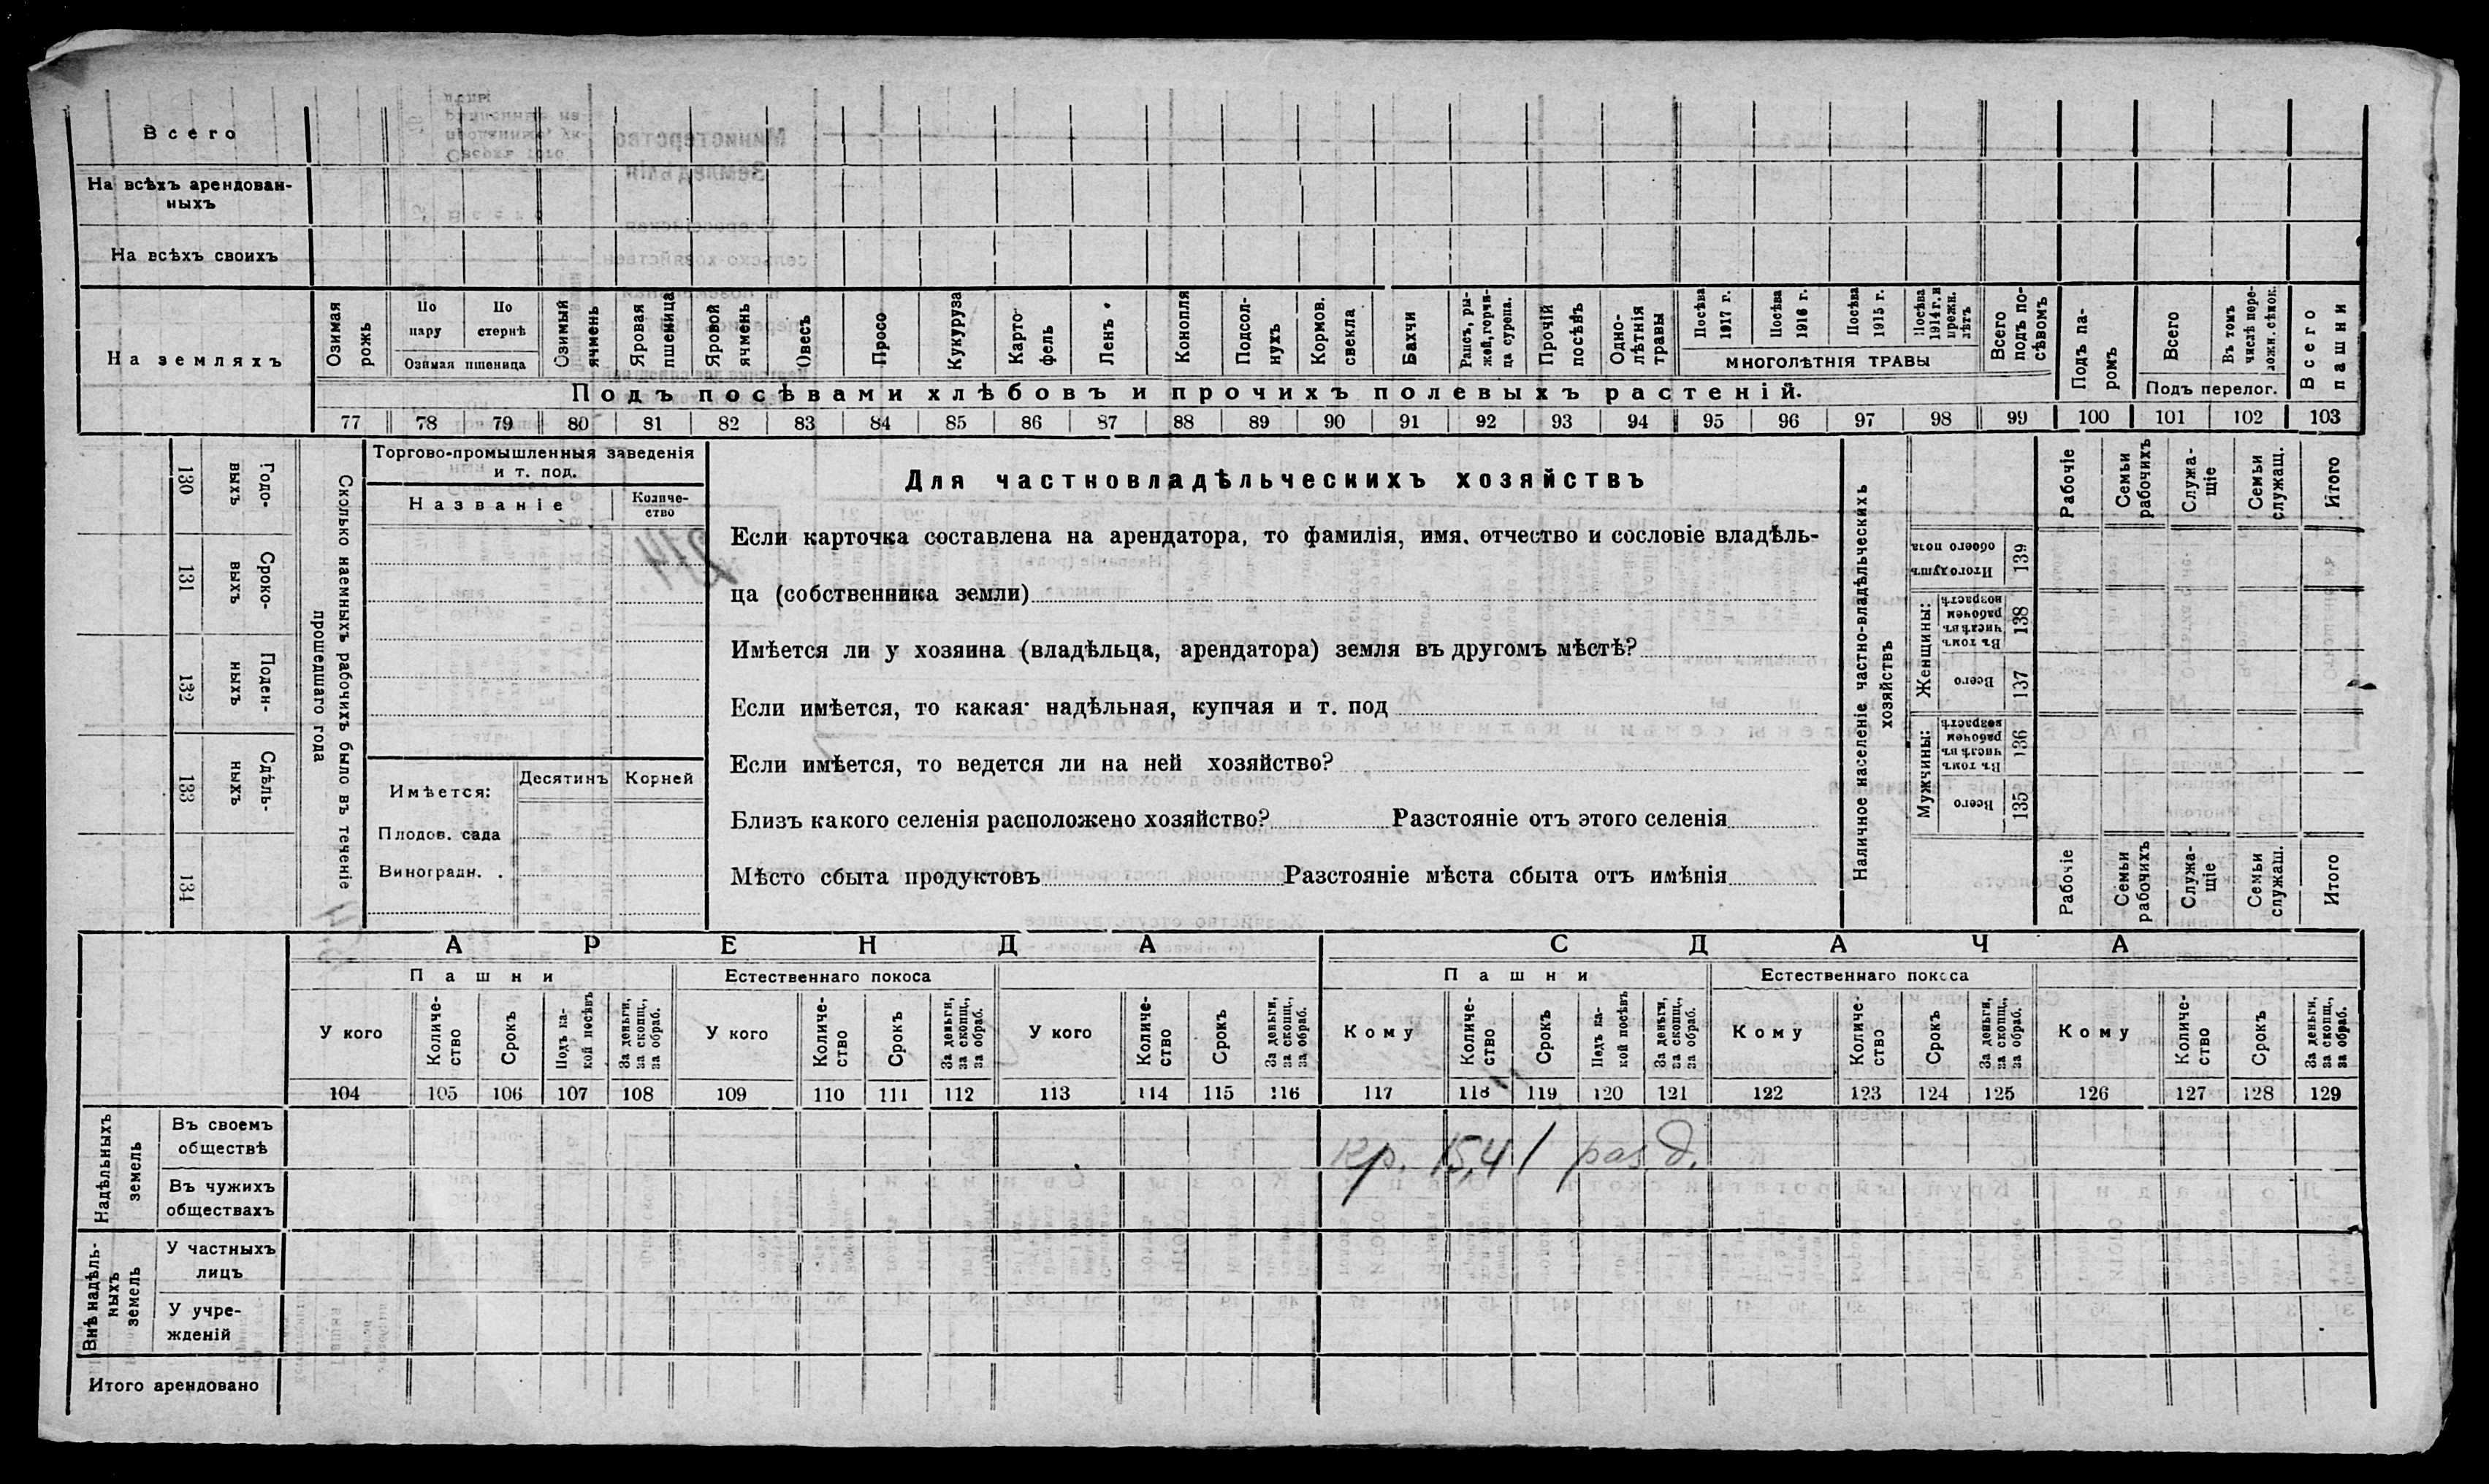 Всего
На всѣхъ арендован-
ныхъ
На всѣхъ своихъ
На земляхъ
Озимая рожь
По пару
По стернѣ
Озимая пшеница
Озимый ячмень
Яровая пшеница
Яровой ячмень
Овесъ
Просо
Кукуруза
Карто-
фель
Ленъ
Конопля
Подсол-
нухъ
Кормов. свекла
Бахчи
Рапсъ, ры-
жей, горчи-
ца сурепа.
Прочій посѣвъ
Одно-
лѣтнія травы
Посѣва 1917 г.
Посѣва 1916 г.
Посѣва 1915 г.
Посѣва 1914 г. и прежн. лѣтъ
МНОГОЛѢТНІЯ ТРАВЫ
Всего подъ по-
сѣвомъ
Подъ па-
ромъ
Всего
Въ томъ числѣ пере-
ложн. сѣнок.
Подъ перелог.
Всего пашни
Подъ посѣвами хлѣбовъ и прочихъ полевыхъ растеній.
77 78 79 80 81 82 83 84 85 86 87 88 89 90 91 92 93 94 95 96 97 98 99 100 101 102 103
Сколько наемныхъ рабочихъ было въ теченіе
прошедшаго года
Годо-
выхъ
130
Сроко-
выхъ
131
Поден-
ныхъ
132
Сдѣль-
ныхъ
133
134
Торгово-промышленныя заведенія
и т. под.
Названіе
Количе-
ство
Имѣется:
Десятинъ
Корней
Плодов. сада
Виноградн. .
Для частновладѣльческихъ хозяйствъ
Если карточка составлена на арендатора, то фамилія, имя. отчество и сословіе владѣль-
ца (собственника земли)
Имѣется ли у хозяина (владѣльца, арендатора) земля въ другомъ мѣстѣ?
Если имѣется, то какая· надѣльная, купчая и т. под
Если имѣется, то ведется ли на ней хозяйство?
Близъ какого селенія расположено хозяйство? Разстояніе отъ этого селенія
Мѣсто сбыта продуктовъ Разстояніе мѣста сбыта отъ имѣнія
Наличное населеніе частно-владѣльческихъ
хозяйствъ
Рабочіе
Семьи рабочихъ
Служа-
щіе
Семьи служащ.
Итого
Итого душъ обоего пола
139
Женщины:
Въ томъ числѣ въ рабочем возрастѣ
138
Всего
137
Мужчины:
Въ томъ числѣ въ рабочем возрастѣ
136
Всего
135
Рабочіе
Семьи рабочихъ
Служа-
щіе
Семьи служащ.
Итого
АРЕНДА
СДАЧА
Пашни
Естественнаго покоса
Пашни
Естественнаго покоса
У кого
Количе-
ство
Срокъ
Подъ ка-
кой посѣвъ
За деньги, за скопщ., за обраб.
У кого
Количе-
ство
Срокъ
За деньги, за скопщ., за обраб.
У кого
Количе-
ство
Срокъ
За деньги, за скопщ., за обраб.
Кому
Количе-
ство
Срокъ
Подъ ка-
кой посѣвъ
За деньги, за скопщ., за обраб.
Кому
Количе-
ство
Срокъ
За деньги, за скопщ., за обраб.
Кому
Количе-
ство
Срокъ
За деньги, за скопщ., за обраб.
104 105 106 107 108 109 110 111 112 113 114 115 116 117 118 119 120 121 122 123 124 125 126 127 128 129
Надѣльныхъ
земель
Въ своемъ
обществѣ
кр. 15,4 1
Въ чужихъ
обществахъ
Внѣ надѣль-
ныхъ
земель
У частныхъ
лицъ
У учре-
жденій
Итого арендовано